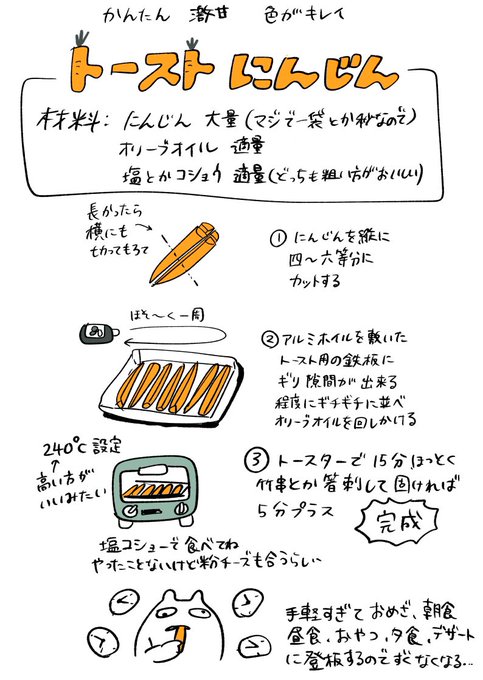 かんたん 激甘 色がキレイ
トースト にんじん
材料: にんじん 大量(マジで一袋とか秒なので)
オリーブオイル 適量
塩とかコショウ 適量(どっちも粗い方がおいしい)
長かったら
横にも
切ってもろて
① にんじんを縦に
四〜六等分に
カットする
ほそ〜く一周
② アルミホイルを敷いた
トースト用の鉄板に
ギリ隙間が出来る
程度にギチギチに並べ
オリーブオイルを回しかける
240℃ 設定
↑
高い方が
いいみたい
③ トースターで 15分 ほっとく
竹串とか箸刺して固ければ
5分プラス
完成
塩コショーで食べてね
やったことないけど粉チーズも合うらしい
手軽すぎて おめざ、朝食
昼食、おやつ、夕食、デザート
に登板するのですぐなくなる...